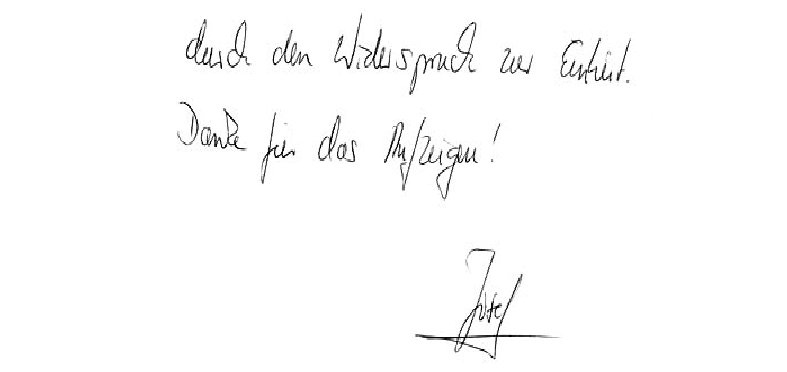 durch den Widerspruch zur Einheit.
Danke für das Aufzeigen!
Josef